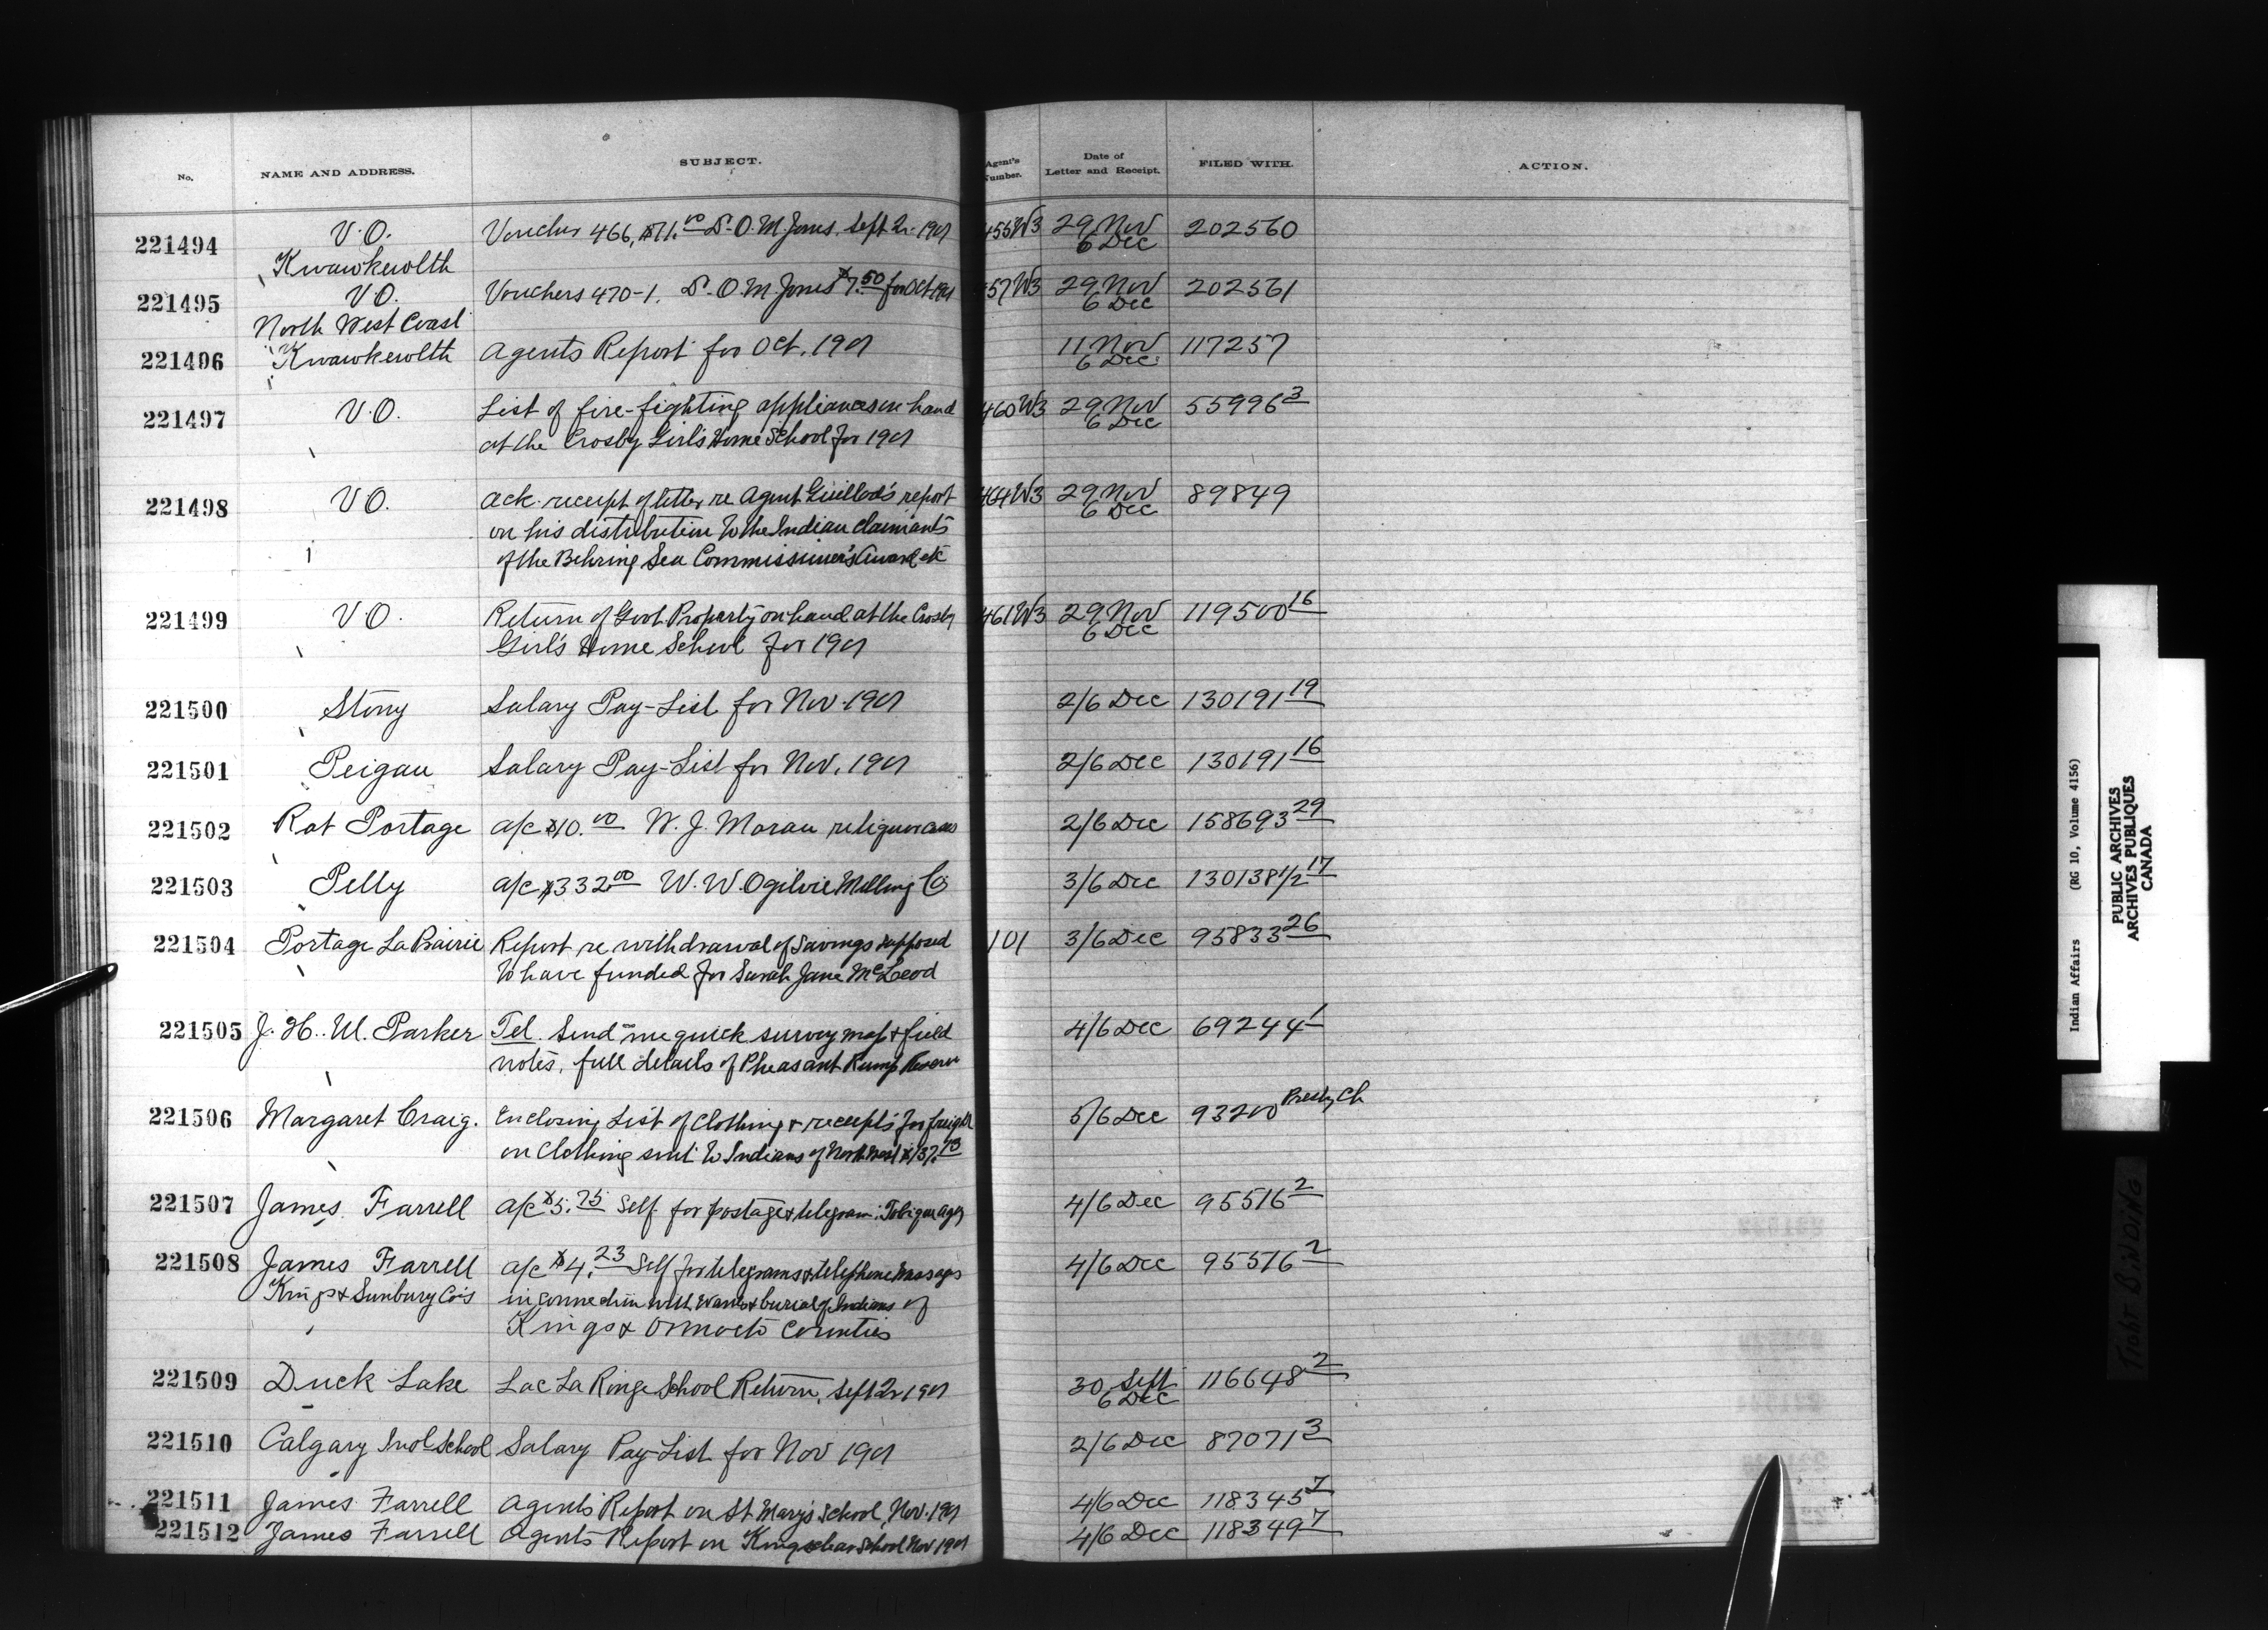 No. NAME AND ADDRESS. SUBJECT. Agent's Number. Date of Letter and Receipt. FILED WITH. ACTION.
221494 V.O. Voucher 466, $71.00 S. O. M. Jones. Sept Qr 1901 455W3 29 Nov 202560
Kwawkewlth 6 Dec
221495 V.O. Vouchers 470-1. S. O. M. Jones $7.50 for Oct 1901 457W3 29 Nov 202561
North West Coast 6 Dec
221496 Kwawkewlth Agents Report for Oct. 1901 11 Nov 117257
6 Dec
221497 V.O. List of fire-fighting appliances on hand 460W3 29 Nov 55996 3
at the Crosby Girl's Home School for 1901 6 Dec
221498 V.O. Ack. receipt of letter re Agent Guillod's report 464W3 29 Nov 89849
on his distribution to the Indian claimants 6 Dec
of the Behring Sea Commissioner's Award etc
221499 V.O. Return of Govt Property on hand at the Crosby 461W3 29 Nov 119500 16
Girl's Home School for 1901 6 Dec
221500 Stony Salary Pay-List for Nov. 1901 2/6 Dec 130191 19
221501 Peigan Salary Pay-List for Nov. 1901 2/6 Dec 130191 16
221502 Rat Portage a/c $10.00 W. J. Moran re liquor cases 2/6 Dec 158693 29
221503 Pelly a/c $332.00 W. W. Ogilvie Milling Co 3/6 Dec 130138 1/2 17
221504 Portage La Prairie Report re withdrawal of Savings supposed 101 3/6 Dec 95833 26
to have funded for Sarah Jane McLeod
221505 J. H. W. Parker Tel. Send me quick survey map & field 4/6 Dec 69244 1
notes, full details of Pheasant Rump Reserve
221506 Margaret Craig. Enclosing List of Clothing & receipts for freight 5/6 Dec 93200 Presby Ch
on Clothing sent to Indians of North West $137.13
221507 James Farrell a/c $5.75 Self for postage & telegram: Tobique Agcy 4/6 Dec 95516 2
221508 James Farrell a/c $4.23 Self for telegrams & telephone messages 4/6 Dec 95516 2
Kings & Sunbury Co's in connection with & burial of Indians of
Kings & Oromocto Counties
221509 Duck Lake Lac La Ronge School Return, Sept Qr 1901 30 Sept 116648 2
6 Dec
221510 Calgary Indl School Salary Pay-List for Nov 1901 2/6 Dec 87071 3
221511 James Farrell Agents Report on St Mary's School, Nov. 1901 4/6 Dec 118345 7
221512 James Farrell Agents Report on Kingsclear School Nov 1901 4/6 Dec 118349 7
Indian Affairs (RG 10, Volume 4156)
PUBLIC ARCHIVES
ARCHIVES PUBLIQUES
CANADA
TIGHT BINDING